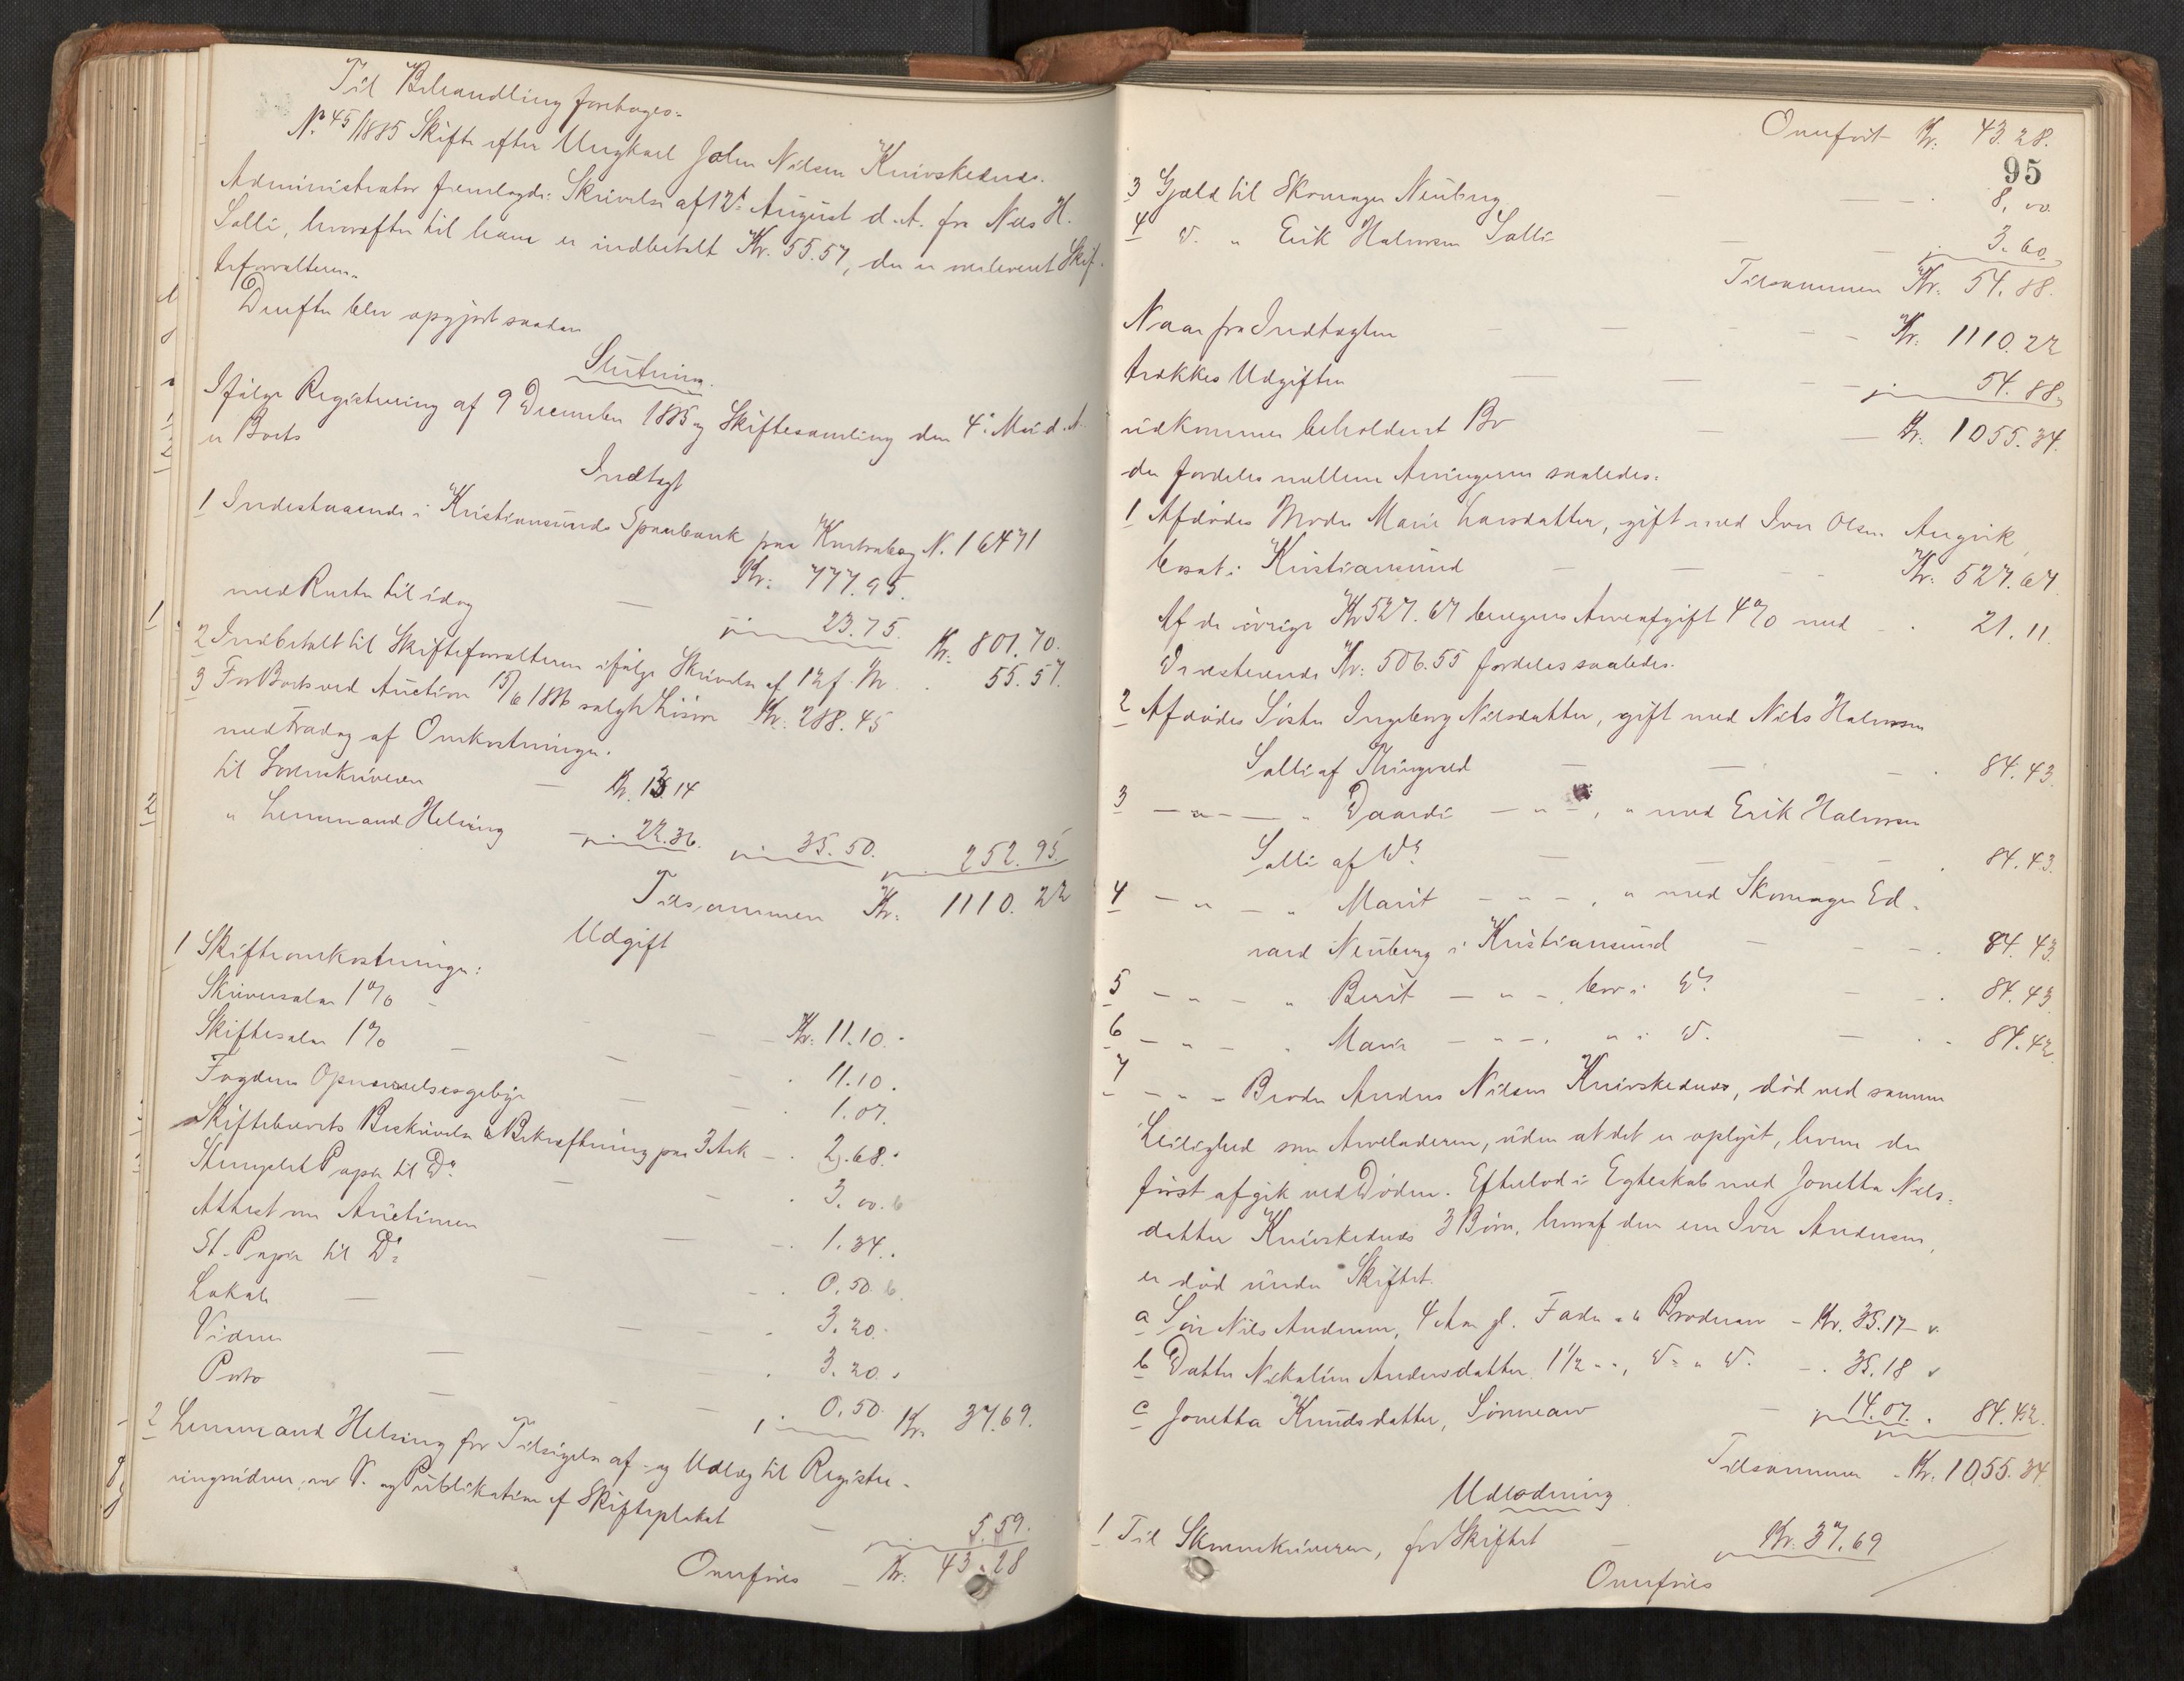 Til Behandling foretoges.
No. 45/1885 Skifte efter Ungkarl John Nilsen Knivskednes.
Administrator fremlagde: Skrivelse af 12te August d. A. fra Nils H.
Salli, hvorefter til ham er indbetalt Kr. 55.57, der er overleveret Skif-
teforvalteren.
Derefter blev opgjort saadan
Slutning.
Ifølge Registrering af 9 December 1885 og Skiftesamling den 4de Mai d. A.
er Boets
Indtægt
1 Indestaaende i Kristiansunds Sparebank paa Kontrabog N. 16471
Kr. 777.95.
med Renter til idag — 23.75. Kr. 801.70.
2 Indbetalt til Skifteforvalteren ifølge Skrivelse af 12 f. M. 55.57.
3 For Boets ved Auction 15/6 1886 solgte Løsøre Kr. 288.45
med Fradrag af Omkostninger.
til Sorenskriveren — Kr. 13.14
" Lensmand Helsing — 22.36. 35.50. 252.95.
Tilsammen Kr. 1110.22
Udgift
1 Skifteomkostninger:
Skriversalær 1% — Kr. 11.10.
Skiftesalær 1% — 11.10.
Fogdens Opnævnelsesgebyr — 1.07.
Skiftebrevets Beskrivelse & Bekræftning paa 3 Ark — 2.68.
Stemplet Papir til Do — 3.00.
Attest om Auctionen — 1.34.
St. Papir til Do — 0.50.
Lokale — 3.20.
Vidner — 3.20.
Porto — 0.50. Kr. 37.69.
2 Lensmand Helsing for Tilsigelse af og Udlæg til Registre-
ringsvidner, og Publikation af Skifteplakat — 5.59.
Omføres — Kr. 43.28
Omført Kr. 43.28.
95
3 Gjæld til Skomager Neuberg — 8.00.
4 D. " Erik Halvorsen Salli — 3.60.
Tilsammen Kr. 54.88.
Naar fra Indtægten — Kr. 1110.22
trækkes Udgiften — 54.88.
udkommer beholdent Bo — Kr. 1055.34.
der fordeles mellem Arvingerne saaledes:
1 Afdødes Moder Marie Larsdatter, gift med Iver Olsen Angvik,
bosat i Kristiansund — Kr. 527.67
Af de øvrige Kr 527.67 beregnes Arveafgift 4% med 21.11.
De resterende Kr. 506.55 fordeles saaledes.
2 Afdødes Søster Ingeborg Nilsdatter, gift med Nils Halvorsen
Salli af Thingvold — 84.43
3 — " — " Daardi — " —, " med Erik Halvorsen
Salli af Do — 84.43.
4 — " — " Marit — " —, " med Skomager Ed-
vard Neuberg i Kristiansund — 84.43.
5 — " — " Berit — " —, bor i Do — 84.43
6 — " — " Marie — " —, " i D. — 84.42.
7 — " — Broder Anders Nilsen Knivskednes, død ved samme
Leilighed som Arveladeren, uden at det er oplyst, hvem der
først afgik ved Døden. Efterlod i Egteskab med Jonetta Nils-
datter Knivskednes 3 Børn, hvoraf den ene Iver Andersen,
er død under Skiftet.
a Søn Nils Andersen, 4 Aar gl. Fader " & Broderarv — Kr. 35.17
b Datter Nikoline Andersdatter 1½ " ", D. " D. — 35.18
c Jonetta Knudsdatter, Sønnearv — 14.07. 84.42.
Tilsammen Kr. 1055.34
Udlodning
1 Til Skrenskriveren, for Skiftet — Kr. 37.69
Omføres